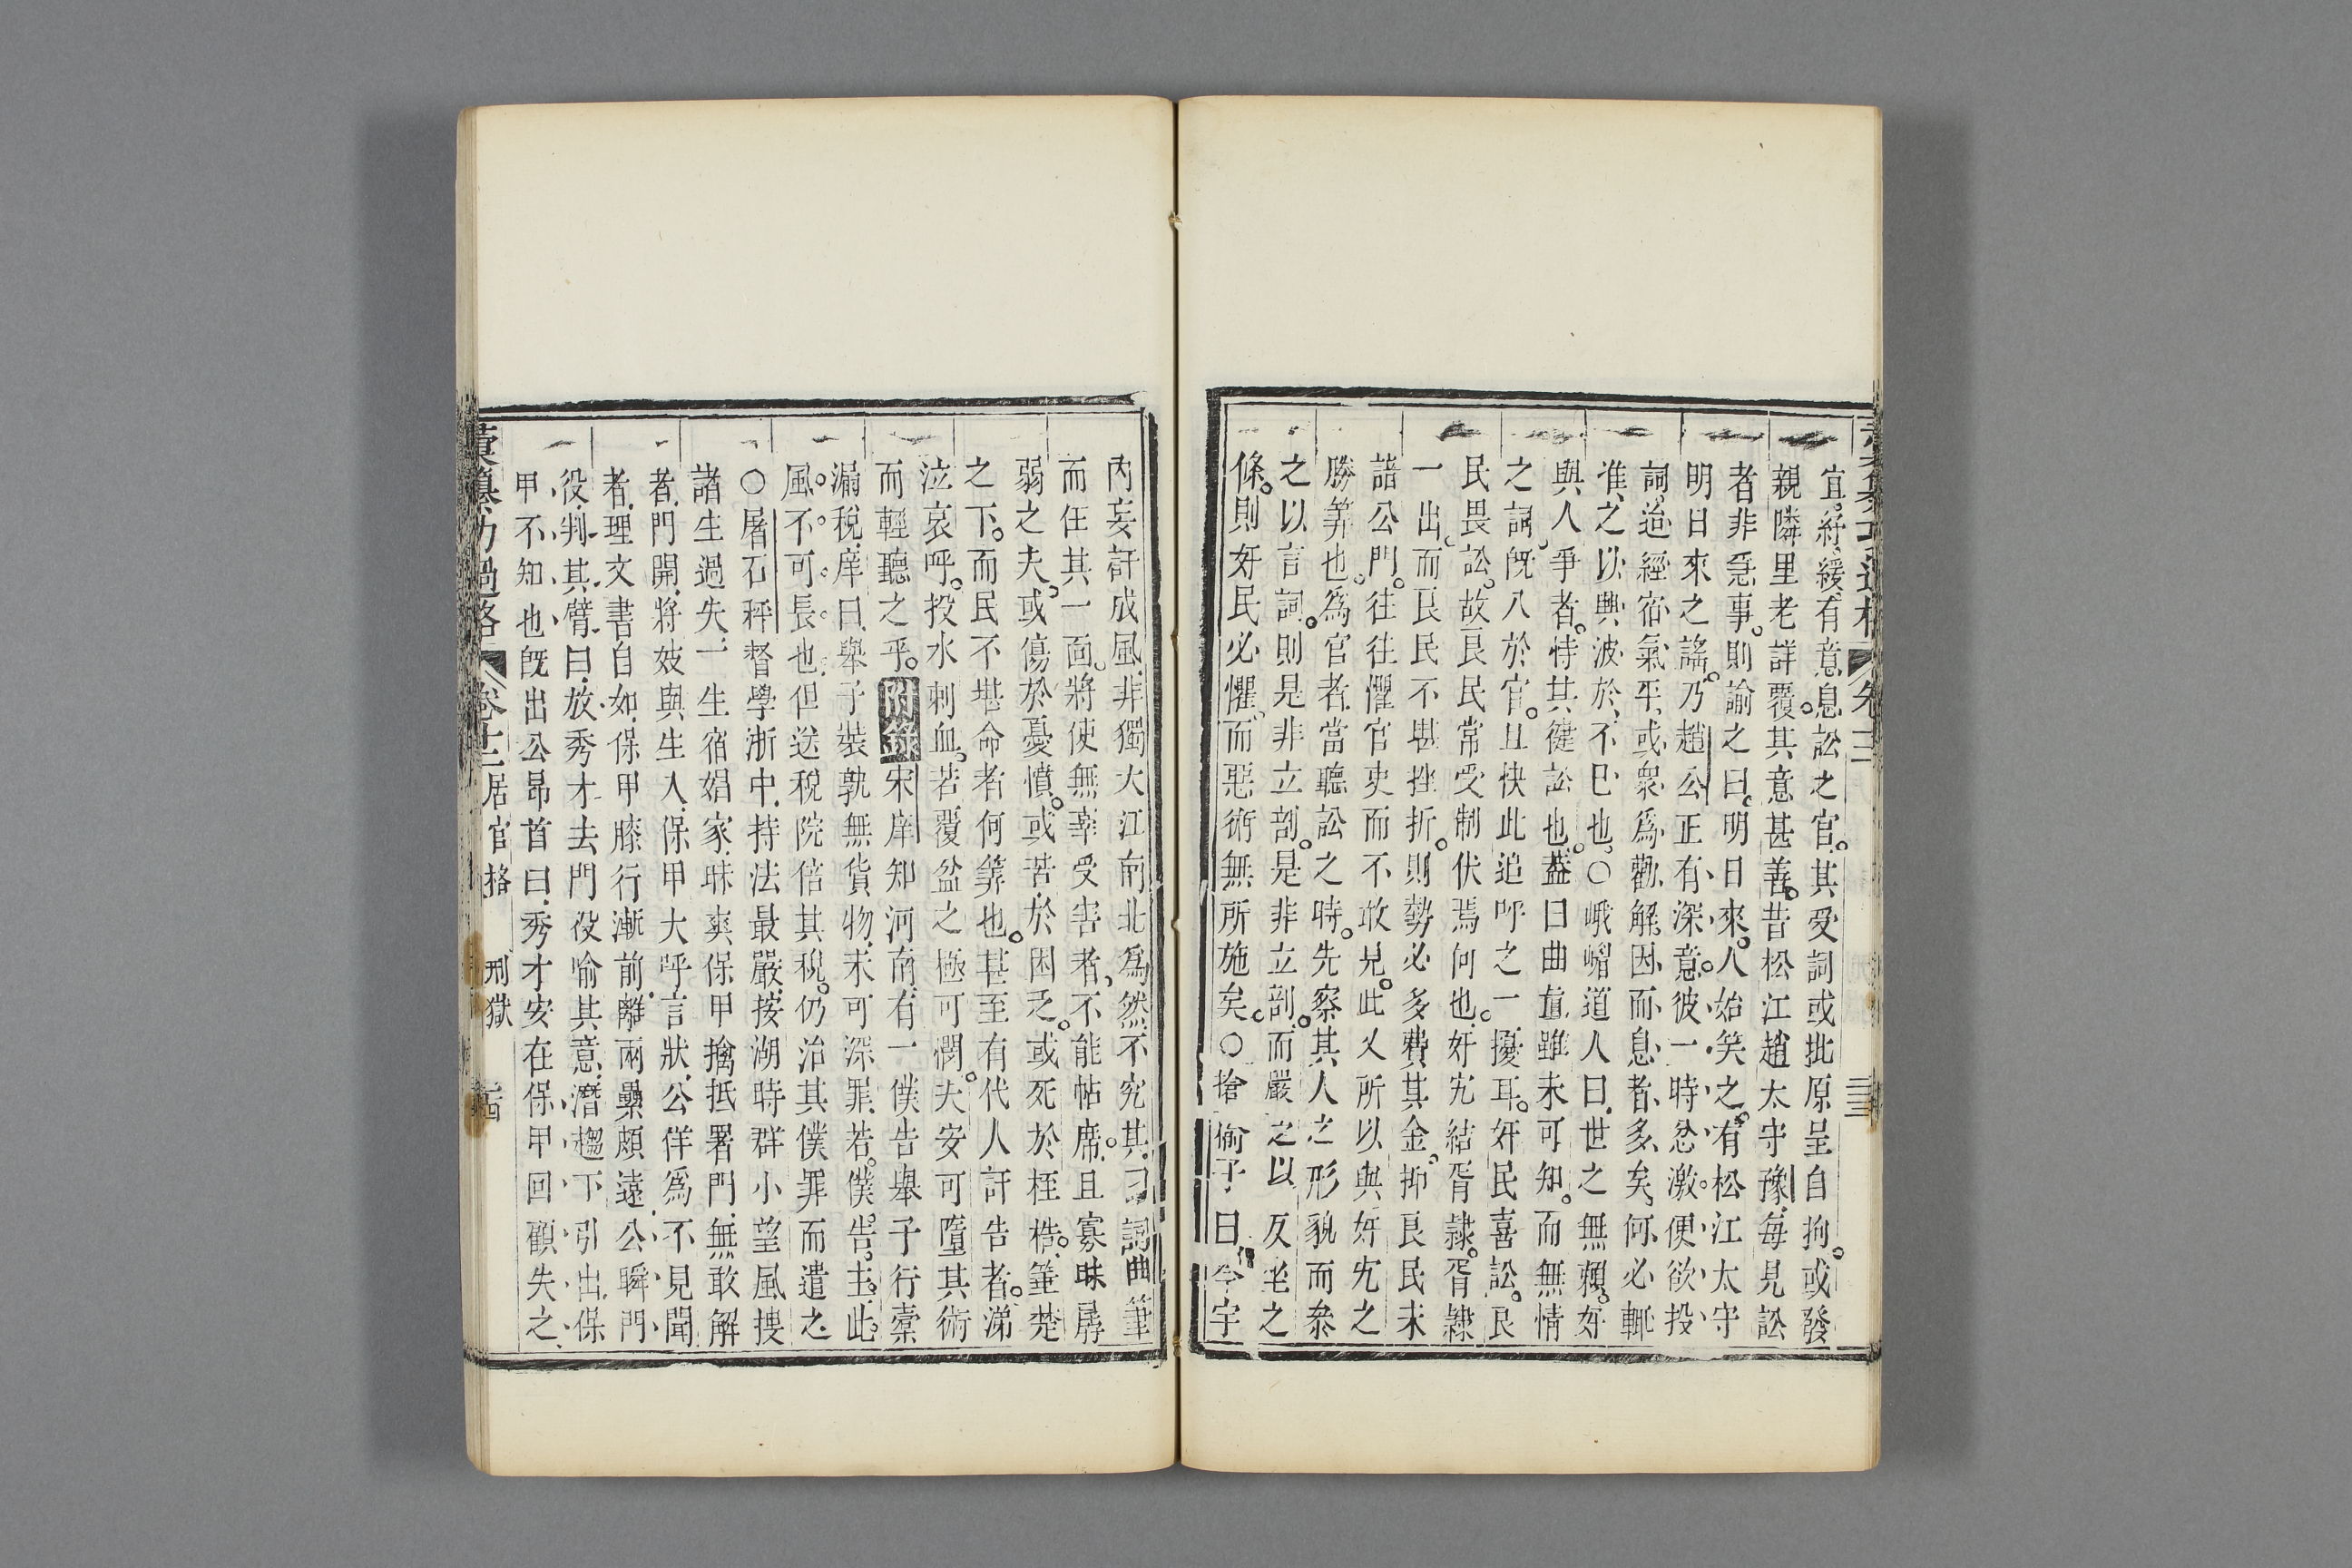 宜紓緩有意息訟之官其受詞或批原呈自拘或發
親隣里老詳覆其意甚善昔松江趙太守豫每見訟
者非急事則諭之曰明日來人始笑之有松江太守
明日來之謠乃趙公正有深意彼一時忿激便欲投
詞迨經宿氣平或衆爲勸解因而息者多矣何必輒
准之以興波於不已也○峨嵋道人曰世之無賴好
與人爭者恃其健訟也葢曰曲直雖未可知而無情
之詞旣入於官且快此追呼之一擾耳奸民喜訟良
民畏訟故良民常受制伏焉何也奸宄結胥隸胥隸
一出而良民不堪挫折則勢必多費其金抑良民未
諳公門往往懼官吏而不敢見此又所以與奸宄之
勝筭也爲官者當聽訟之時先察其人之形貌而叅
之以言詞則是非立剖是非立剖而嚴之以反坐之
條則奸民必懼而惡術無所施矣○捨偷子曰今宇
內妄訐成風非獨大江南北爲然不究其口詞曲筆
而任其一面將使無辜受害者不能帖席且寡昧孱
弱之夫或傷於憂憤或苦於困乏或死於桎梏箠楚
之下而民不堪命者何筭也甚至有代人訐告者涕
泣哀呼投水刺血若覆盆之極可憫夫安可墮其術
而輕聽之乎附錄宋庠知河南有一僕告舉子行橐
漏稅庠曰舉子裝孰無貨物未可深罪若僕告主此
風不可長也但送稅院倍其稅仍治其僕罪而遣之
○屠石秤督學浙中持法最嚴按湖時群小望風搜
諸生過失一生宿娼家昧爽保甲擒抵署門無敢解
者門開將妓與生入保甲大呼言狀公佯爲不見聞
者理文書自如保甲膝行漸前離兩纍頗遠公瞬門
役判其臂曰放秀才去門役喻其意潛趨下引出保
甲不知也旣出公昂首曰秀才安在保甲回顧失之
彙纂功過格 卷十二 居官格 刑獄 二四